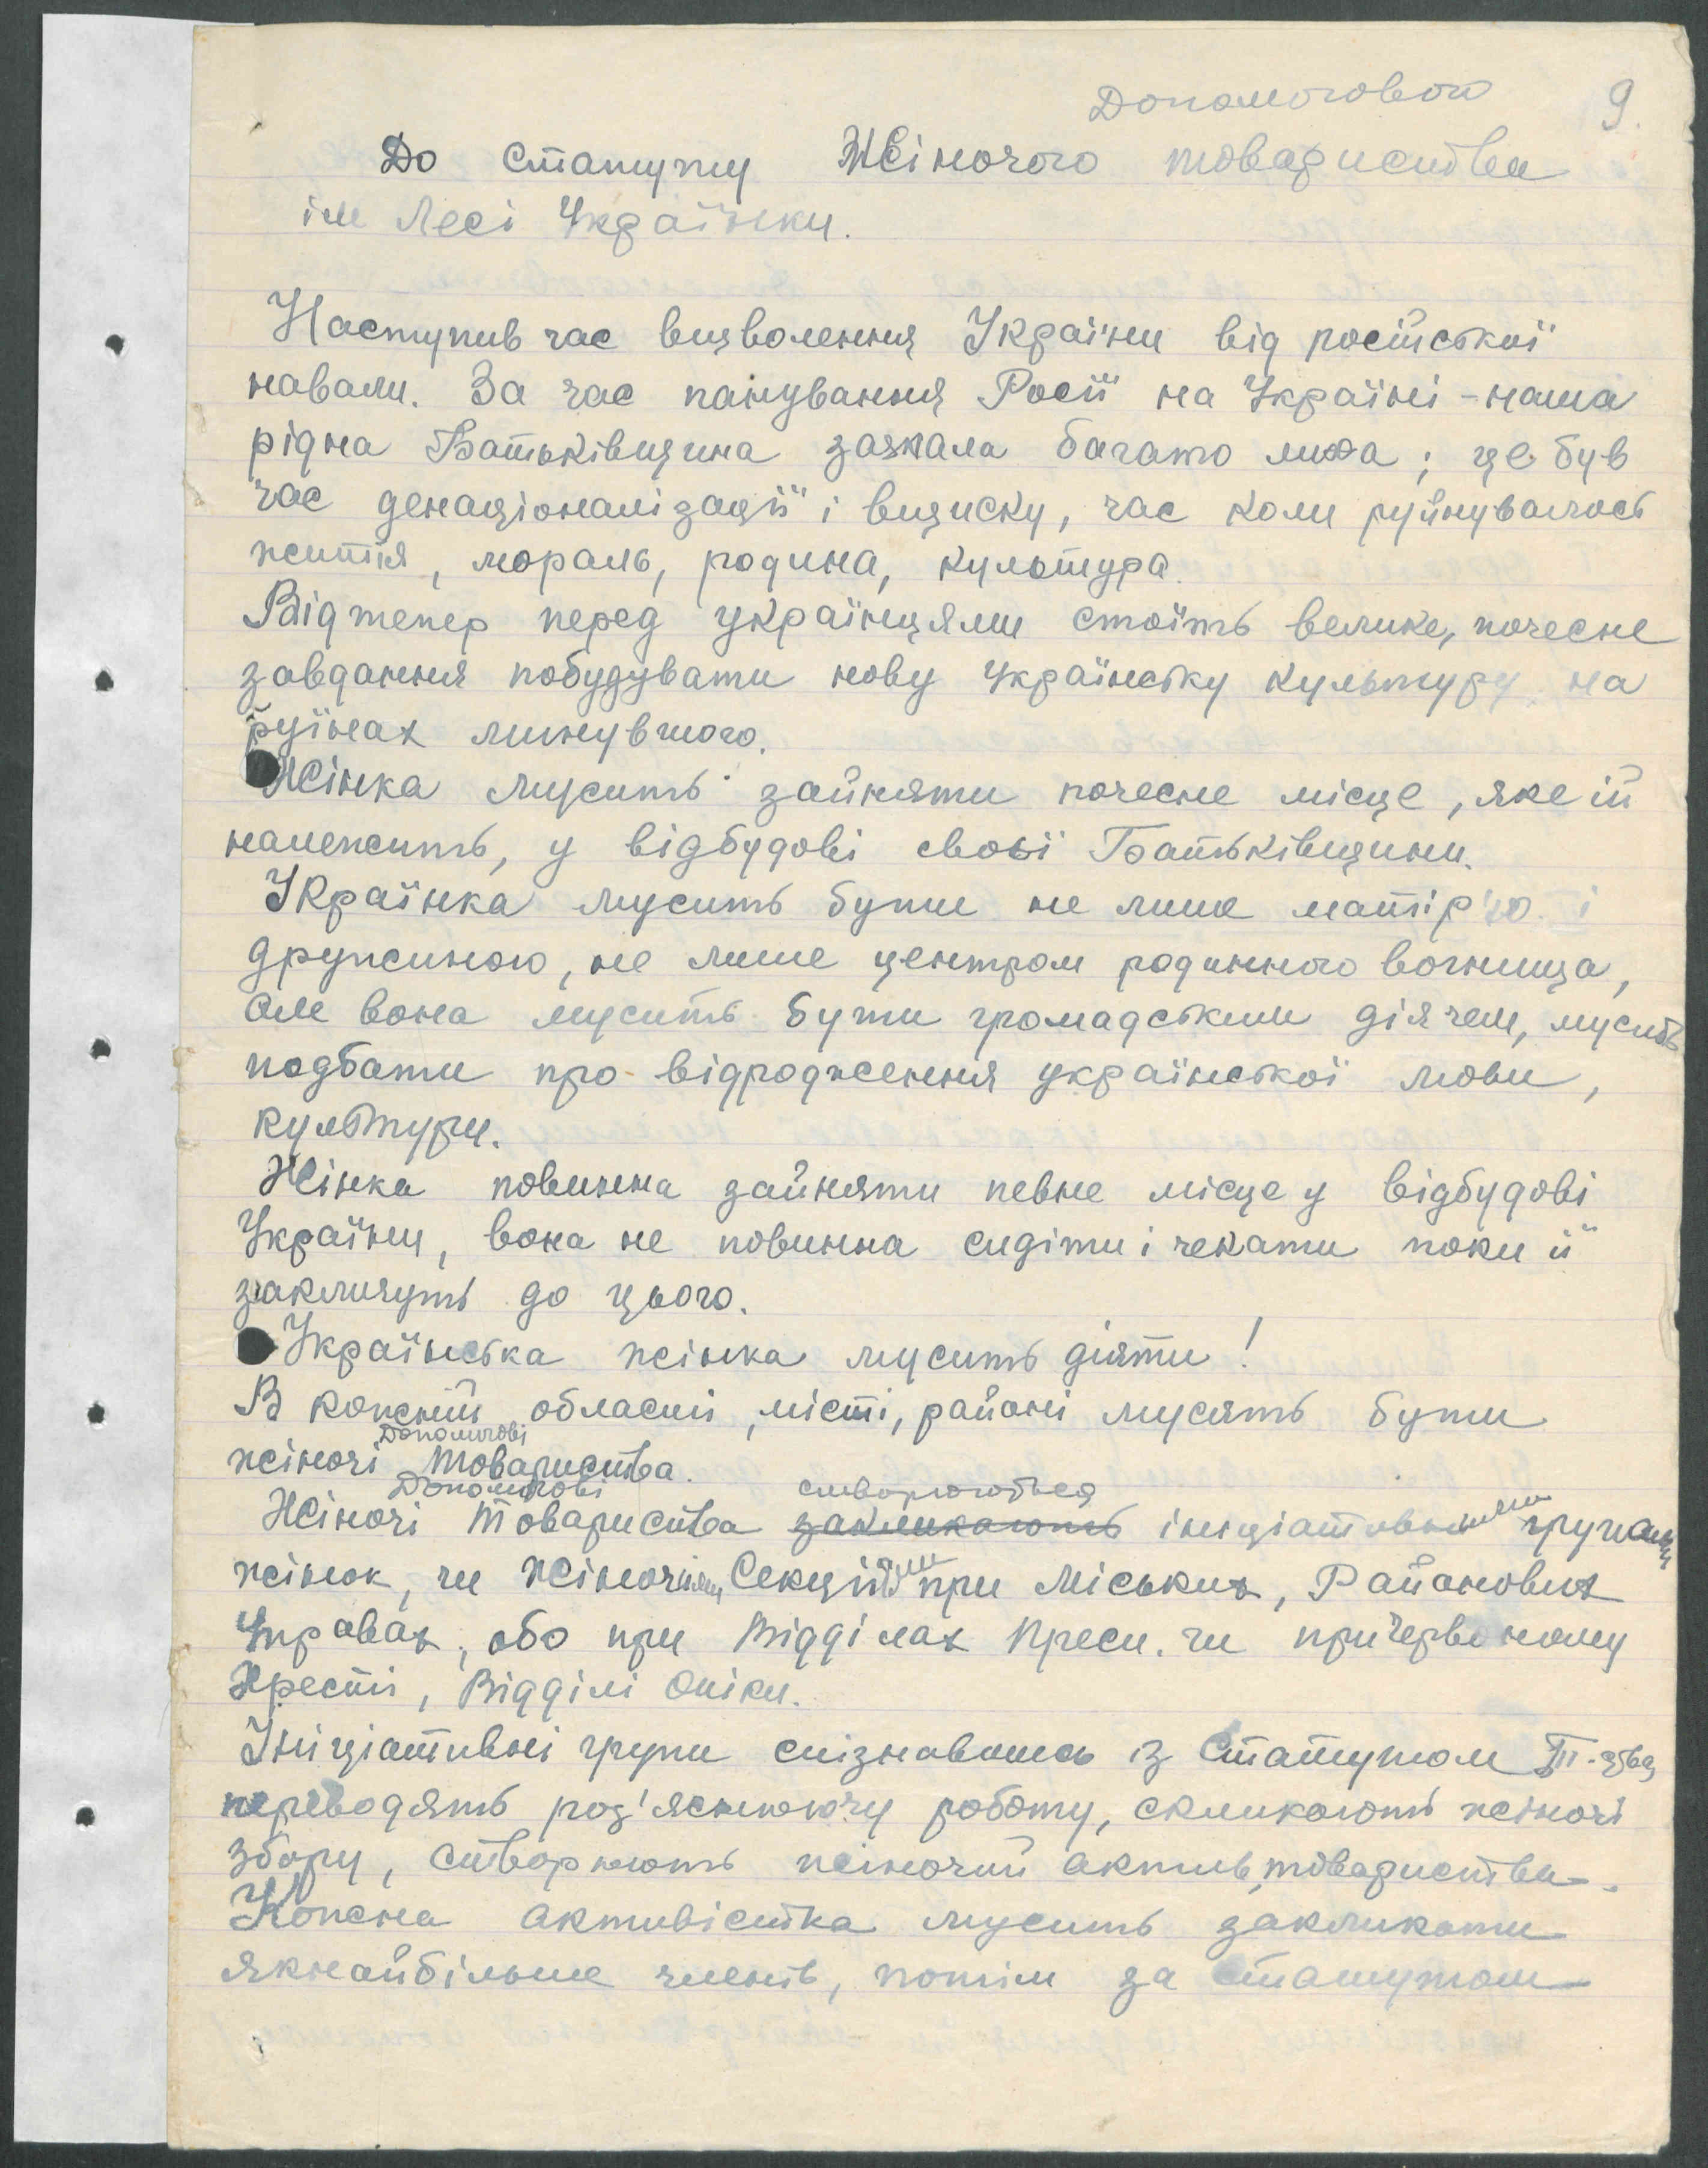 Допомогового
9.
До Статуту Жіночого товариства
ім Лесі Українки.
Наступив час визволення України від російської
навали. За час панування Росії на Україні - наша
рідна Батьківщина зазнала багато лиха; це був
час денаціоналізації і визиску, час коли руйнувались
життя, мораль, родина, культура.
Відтепер перед українцями стоїть велике, почесне
завдання побудувати нову українську культуру на
руїнах минувшого.
Жінка мусить зайняти почесне місце, яке їй
належить, у відбудові своєї Батьківщини.
Українка мусить бути не лише матір'ю і
дружиною, не лише центром родинного вогнища,
але вона мусить бути громадським діячем, мусить
подбати про відродження української мови,
культури.
Жінка повинна зайняти певне місце у відбудові
України, вона не повинна сидіти і чекати поки її
закличуть до цього.
Українська жінка мусить діяти!
В кожній області, місті, районі мусять бути
Допомогові
жіночі товариства.
Допомогові створюються
Жіночі товариства закликають ініціативними групами
жінок, чи Жіночими Секціями при Міських, Районових
Управах, або при Відділах Преси. чи при Червоному
Хресті, Відділі Опіки.
Ініціативні групи спізнавшись із Статутом Т-ства
переводять роз'яснюючу роботу, скликають жіночі
збори, створюють жіночий актив, товариства.
Кожна активістка мусить закликати
якнайбільше членів, потім за статутом